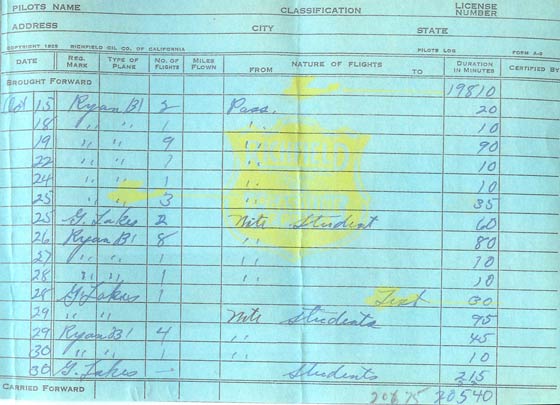 PILOTS NAME CLASSIFICATION LICENSE NUMBER
ADDRESS CITY STATE
COPYRIGHT 1928 RICHFIELD OIL CO. OF CALIFORNIA PILOTS LOG FORM A-2
DATE REG. MARK TYPE OF PLANE NO. OF FLIGHTS MILES FLOWN FROM NATURE OF FLIGHTS TO DURATION IN MINUTES CERTIFIED BY
BROUGHT FORWARD 19810
Oct 15 Ryan B1 2 Pass. 20
18 " " 1 " 10
19 " " 9 " 90
22 " " 1 " 10
24 " " 1 " 10
25 " " 3 " 35
25 G. Lakes 2 Nite Student 60
26 Ryan B1 8 " 80
27 " " 1 " 10
28 " " 1 " 10
28 G. Lakes 1 Test 30
29 " " Nite Students 95
29 Ryan B1 4 " 45
30 " " 1 " 10
30 G. Lakes — Students 215
CARRIED FORWARD 20540